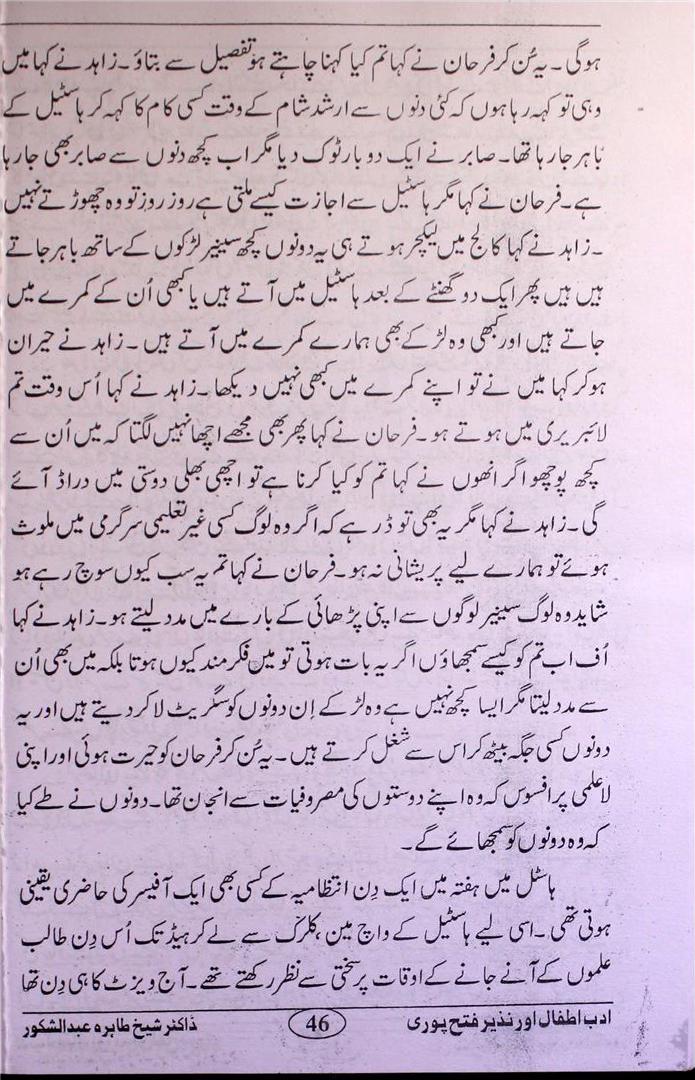 ہوگی۔ یہ سُن کر فرحان نے کہا تم کیا کہنا چاہتے ہو تفصیل سے بتاؤ۔ زاہد نے کہا میں
وہی تو کہہ رہا ہوں کہ کئی دنوں سے ارشد شام کے وقت کسی کام کا کہہ کر ہاسٹیل کے
باہر جا رہا تھا۔ صابر نے ایک دو بار ٹوک دیا مگر اب کچھ دنوں سے صابر بھی جا رہا
ہے۔ فرحان نے کہا مگر ہاسٹیل سے اجازت کیسے ملتی ہے روز روز تو وہ چھوڑتے نہیں
۔ زاہد نے کہا کالج میں لیکچر ہوتے ہی یہ دونوں کچھ سینیر لڑکوں کے ساتھ باہر جاتے
ہیں ہیں پھر ایک دو گھنٹے کے بعد ہاسٹیل میں آتے ہیں یا کبھی اُن کے کمرے میں
جاتے ہیں اور کبھی وہ لڑکے بھی ہمارے کمرے میں آتے ہیں ۔ زاہد نے حیران
ہو کر کہا میں نے تو اپنے کمرے میں کبھی نہیں دیکھا۔ زاہد نے کہا اُس وقت تم
لائبریری میں ہوتے ہو۔ فرحان نے کہا پھر بھی مجھے اچھا نہیں لگتا کہ میں اُن سے
کچھ پوچھو اگر انھوں نے کہا تم کو کیا کرنا ہے تو اچھی بھلی دوستی میں دراڈ آئے
گی۔ زاہد نے کہا مگر یہ بھی تو ڈر ہے کہ اگر وہ لوگ کسی غیر تعلیمی سرگرمی میں ملوث
ہوئے تو ہمارے لیے پریشانی نہ ہو۔ فرحان نے کہا تم یہ سب کیوں سوچ رہے ہو
شاید وہ لوگ سینیر لوگوں سے اپنی پڑھائی کے بارے میں مدد لیتے ہو۔ زاہد نے کہا
اُف اب تم کو کیسے سمجھاؤں اگر یہ بات ہوتی تو میں فکر مند کیوں ہوتا بلکہ میں بھی اُن
سے مدد لیتا مگر ایسا کچھ نہیں ہے وہ لڑکے اِن دونوں کو سگریٹ لا کر دیتے ہیں اور یہ
دونوں کسی جگہ بیٹھ کر اس سے شغل کرتے ہیں۔ یہ سُن کر فرحان کو حیرت ہوئی اور اپنی
لاعلمی پر افسوس کہ وہ اپنے دوستوں کی مصروفیات سے انجان تھا۔ دونوں نے طے کیا
کہ وہ دونوں کو سمجھائے گے۔
ہاسٹل میں ہفتہ میں ایک دِن انتظامیہ کے کسی بھی ایک آفیسر کی حاضری یقینی
ہوتی تھی۔ اسی لیے ہاسٹیل کے واچ مین، کلرک سے لے کر ہیڈ تک اُس دِن طالب
علموں کے آنے جانے کے اوقات پر سختی سے نظر رکھتے تھے۔ آج ویزٹ کا ہی دِن تھا
ادب اطفال اور نذیر فتح پوری 46 ڈاکٹر شیخ طاہرہ عبدالشکور